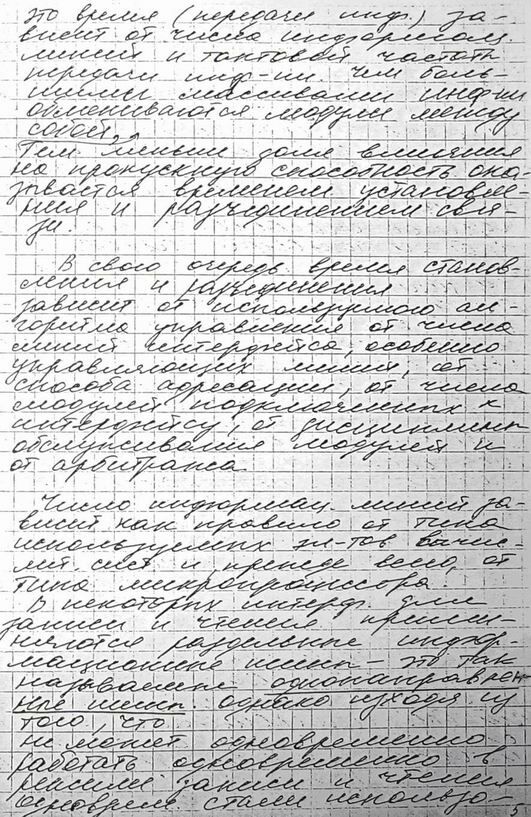 это время (передачи инф.) за-
висит от числа информацион.
линий и тактовой частоты
передачи инф-ии. Чем боль-
шими массивами инф-ии
обмениваются модули между
собой,
Тем меньше доля влияния
на пропускную способность ока-
зывается временем установле
ния и разъединением свя-
зи.
В свою очередь время станов-
ления и разъединения
зависит от используемого ал-
горитма управления от числа
линий интерфейса, особенно
управляющих линий, от
способа адресации, от числа
модулей подключенных к
интерфейсу, от дисциплины
обслуживания модулей и
от арбитража
Число информац. линий за-
висит как правило от типа
используемых эл-тов вычис
лит. сист и прежде всего, от
типа микропроцессора.
В некоторых интерф. для
записи и чтения приме-
няются раздельные инфор
мационные шины - это так
называемые однонаправлен-
ные шины. однако исходя из
того, что
не может одновременно
работать одновременно в
режиме записи и чтения
одноврем. стали использо-
5